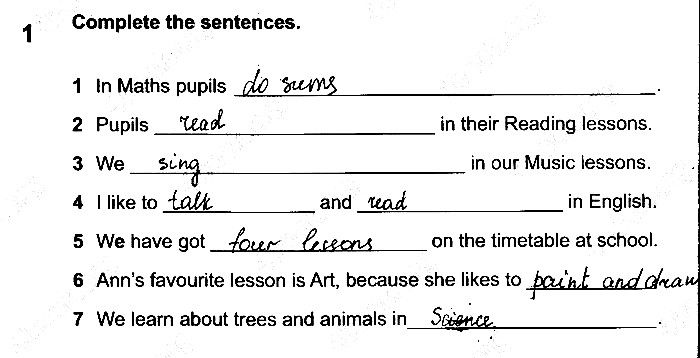 1 Complete the sentences.
1 In Maths pupils do sums.
2 Pupils read in their Reading lessons.
3 We sing in our Music lessons.
4 I like to talk and read in English.
5 We have got four lessons on the timetable at school.
6 Ann's favourite lesson is Art, because she likes to paint and draw
7 We learn about trees and animals in Science.